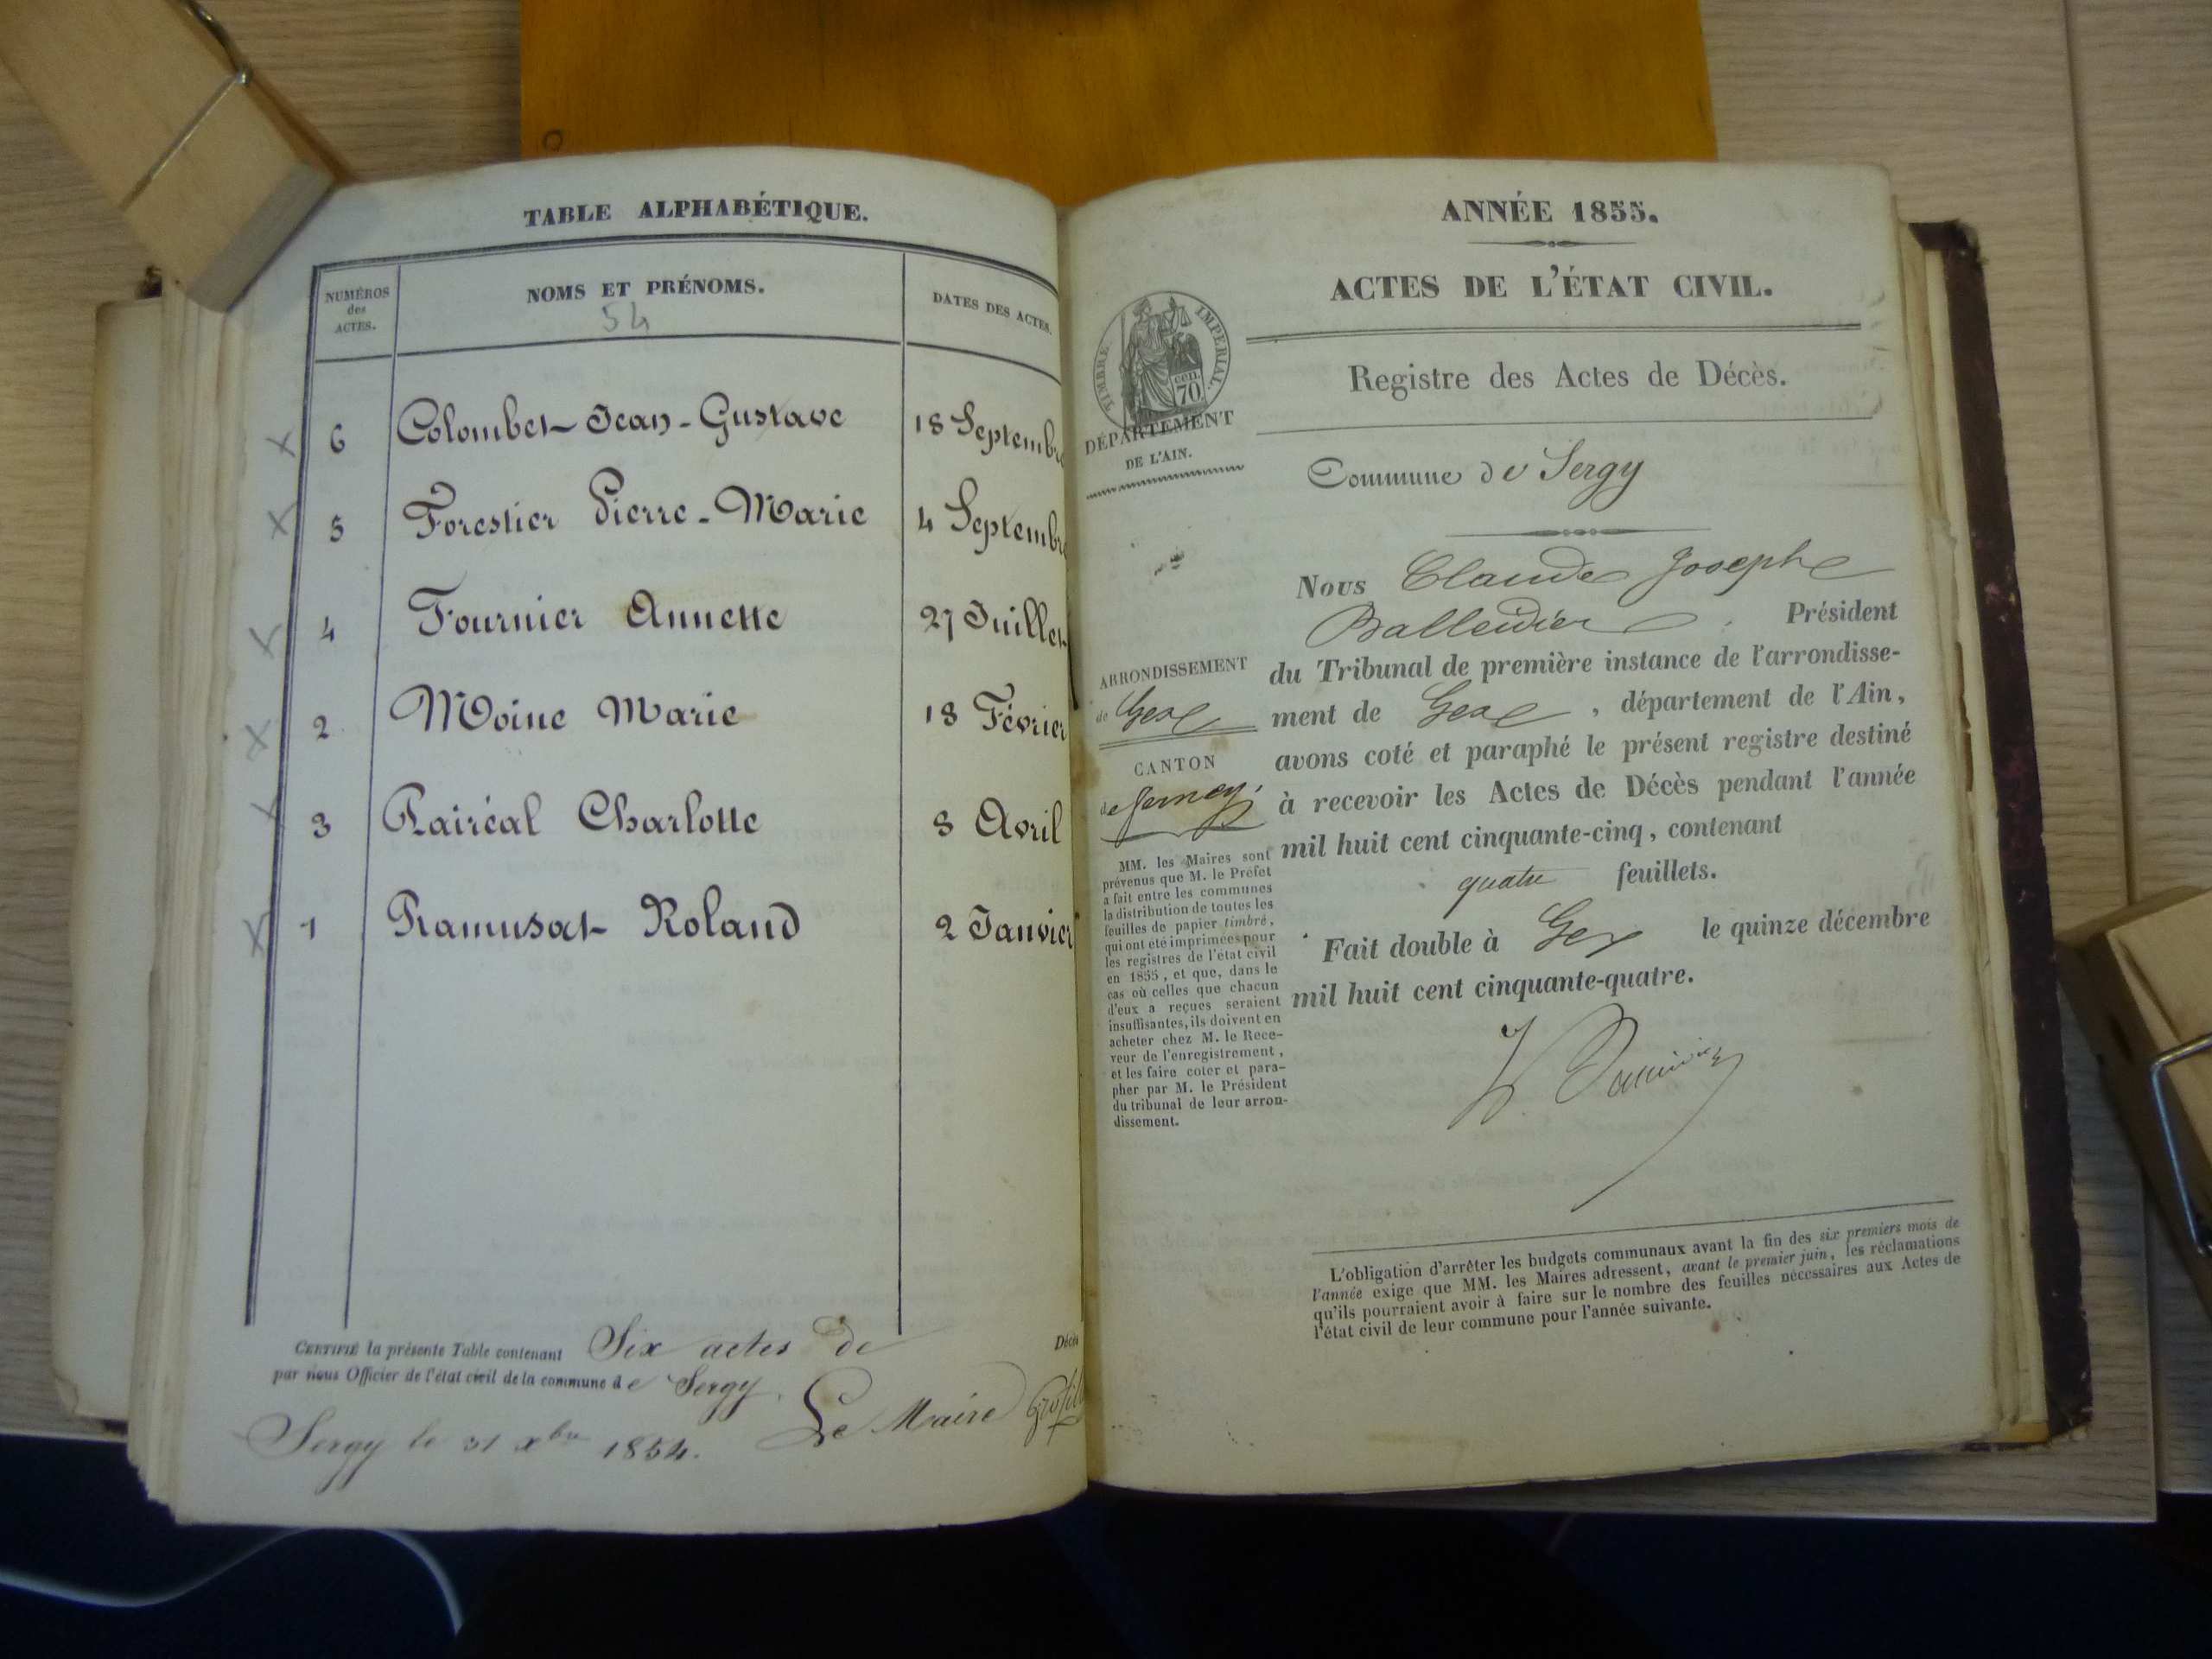 TABLE ALPHABÉTIQUE.
NUMÉROS
des
ACTES.
NOMS ET PRÉNOMS.
54
DATES DES ACTES.
6 Colombet Jean-Gustave 18 Septembre
5 Forestier Pierre-Marie 4 Septembre
4 Fournier Annette 27 Juillet
2 Moine Marie 18 Février
3 Rairéal Charlotte 8 Avril
1 Ramusat Roland 2 Janvier
CERTIFIÉ la présente Table contenant Six actes de Décès
par nous Officier de l'état civil de la commune de Sergy.
Sergy le 31 xbre 1854. Le Maire
ANNÉE 1855.
ACTES DE L'ÉTAT CIVIL.
TIMBRE IMPÉRIAL.
70 cen.
DÉPARTEMENT
DE L'AIN.
Registre des Actes de Décès.
Commune de Sergy
Nous Claude Joseph
Balleidier Président
du Tribunal de première instance de l'arrondisse-
ment de Gex, département de l'Ain,
avons coté et paraphé le présent registre destiné
à recevoir les Actes de Décès pendant l'année
mil huit cent cinquante-cinq, contenant
quatre feuillets.
Fait double à Gex le quinze décembre
mil huit cent cinquante-quatre.
ARRONDISSEMENT
de Gex
CANTON
de Ferney
MM. les Maires sont
prévenus que M. le Préfet
a fait entre les communes
la distribution de toutes les
feuilles de papier timbré,
qui ont été imprimées pour
les registres de l'état civil
en 1855, et que, dans le
cas où celles que chacun
d'eux a reçues seraient
insuffisantes, ils doivent en
acheter chez M. le Rece-
veur de l'enregistrement,
et les faire coter et para-
pher par M. le Président
du tribunal de leur arron-
dissement.
L'obligation d'arrêter les budgets communaux avant la fin des six premiers mois de
l'année exige que MM. les Maires adressent, avant le premier juin, les réclamations
qu'ils pourraient avoir à faire sur le nombre des feuilles nécessaires aux Actes de
l'état civil de leur commune pour l'année suivante.